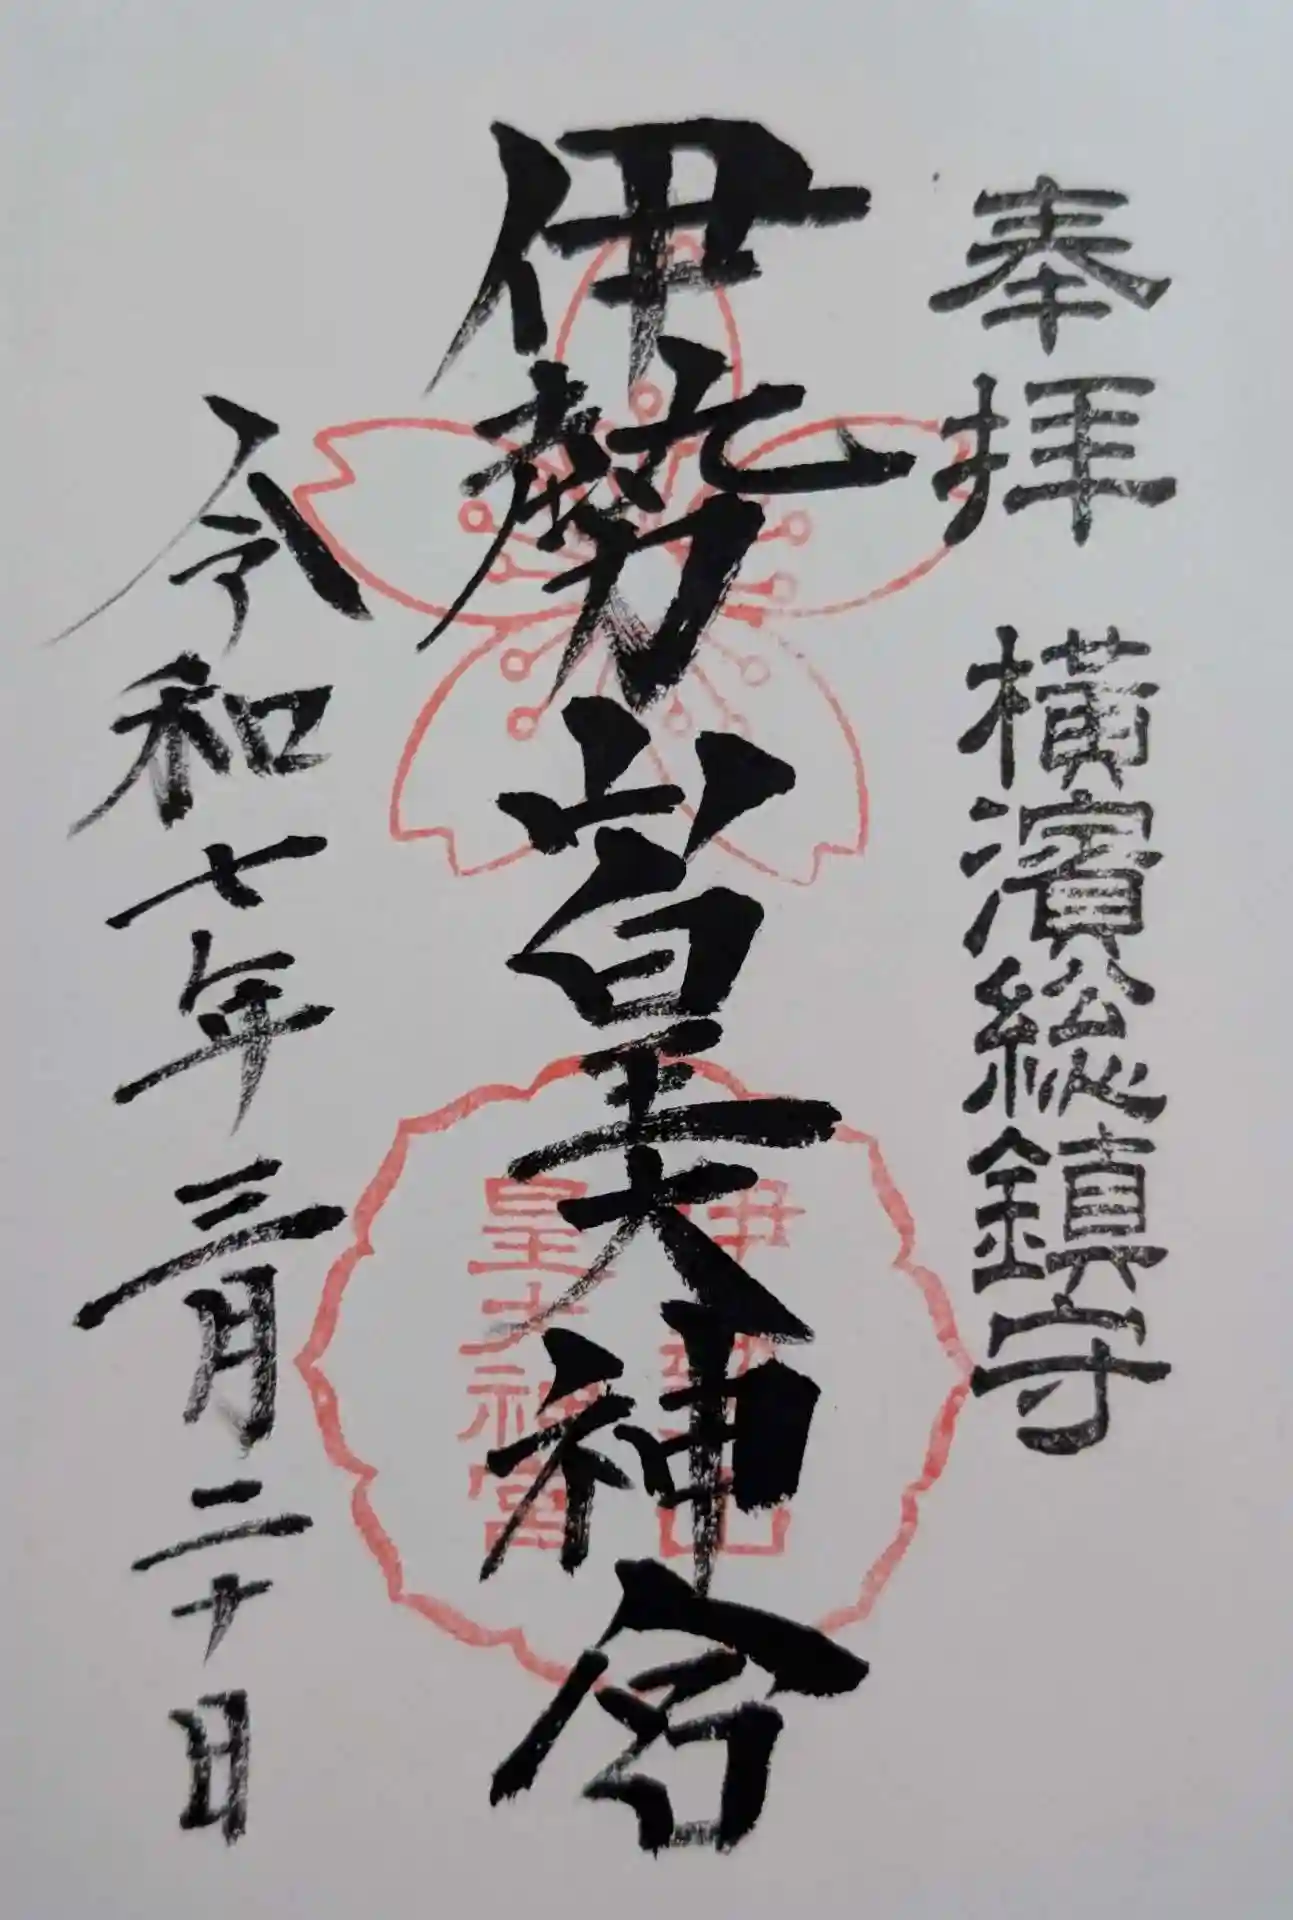 奉拝 横濱総鎮守
伊勢山皇大神宮
令和七年三月二十日
伊勢山
皇大神宮